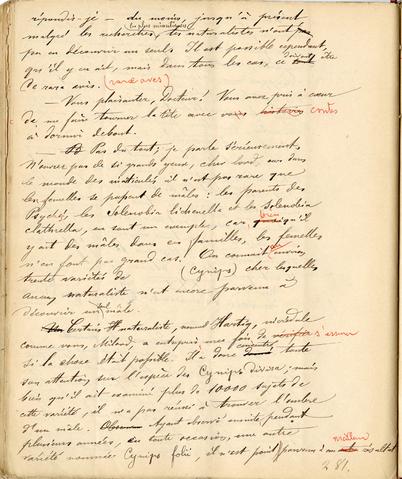 répondis-je — du moins, jusqu'à présent
malgré les recherches les plus minutieuses, les naturalistes n'ont pas
pu en découvrir un seul. Il est possible cependant,
qu'il y en ait, mais dans tous les cas, ce doivent être
de rara avis. (raræ aves)
— Vous plaisantez, Docteur! Vous avez pris à cœur
de me faire tourner la tête avec vos histoires contes
à dormir debout.
— Pas du tout; je parle sérieusement.
N'ouvrez pas de si grands yeux, cher lord, car dans
le monde des articulés il n'est pas rare que
les femelles se passent de mâles: les parents des
Psychés, les Solenobia lichenella et les Solenobia
clathrella, en sont un exemple, car, quoiqu'il bien
y ait des mâles dans ces familles, les femelles
n'en font pas grand cas. On connait environ
trente variétés de (Cynips) chez lesquelles
aucun naturaliste n'est encore parvenu à
découvrir un seul mâle.
Certain naturaliste, nommé Hartig, incrédule
comme vous, Milord, a entrepris une fois de vérifier s'assurer
si la chose était possible. Il a donc concentré toute
son attention, sur l'espèce des Cynips divisa; mais
bien qu'il ait examiné plus de 10000 sujets de
cette variété, il n'a pas réussi à trouver l'ombre
d'un mâle. Ayant observé ensuite, pendant
plusieurs années, en toute occasion, une autre
variété nommée Cynips folii, il n'est point parvenu à un meilleur résultat
281.